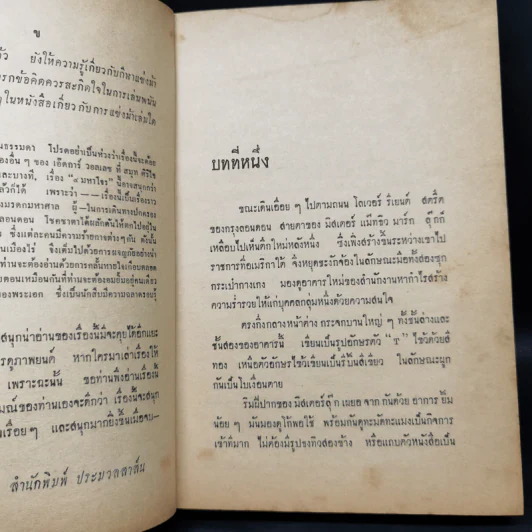 ข
ยังให้ความรู้เกี่ยวกับกีฬาแข่งม้า
รกข้อคิดควรสะกิดใจในการเล่นพนัน
ๆ ในหนังสือเกี่ยวกับการแข่งม้าเล่มใด
ธรรมดา โปรดอย่าเป็นห่วงว่าเรื่องนี้จะด้อย
องอื่น ๆ ของ เอ๊ดการ์ วอลเลซ ที่
และบางที, เรื่อง "๔ มหาโจร" นี้อาจสนุกกว่า
ล้วก็ได้ เพราะว่า — เรื่องนี้เป็นเรื่องราว
สนุกน่าอ่านของเรื่องนี้มีจะคุยได้อีกแยะ
รดูภาพยนต์ หากใครมาเล่าเรื่องให้
เพราะฉะนั้น ขอท่านพึงอ่านเรื่องนี้
มณ์ของท่านเองจะดีกว่า เรื่องนี้จะสนุก
เรื่อยๆ และสนุกมากยิ่งขึ้นเมื่อจบ—
สำนักพิมพ์ ประมวลสาส์น
บทที่หนึ่ง
ขณะเดินเอื่อย ๆ ไปตามถนน โคเวอร์ ริเยนต์ สตรีต
ของกรุงลอนดอน สายตาของ มิสเตอร์ แม๊ททิว มาร์ก ลุ๊กก์
เหลือบไปเห็นตึกใหม่หลังหนึ่ง ซึ่งเพิ่งสร้างขึ้นระหว่างเขาไป
ราชการที่อเมริกาใต้ จึงหยุดชะงักจ้อง ในลักษณะมือทั้งสองซุก
กระเป๋ากางเกง มองดูอาคารใหม่ของสำนักงานหากำไรสร้าง
ความร่ำรวยให้แก่บุคคลกลุ่มหนึ่งด้วยความสนใจ
ตรงกึ่งกลางหน้าต่าง กระจกบานใหญ่ ๆ ทั้งชั้นล่างและ
ชั้นสองของอาคารนี้ เขียนเป็นรูปอักษรตัว "T" ไขว้ด้วยสี
ทอง เหนือตัวอักษรไขว้เขียนเป็นริบบิ้นสีเขียว ในลักษณะผูก
กันเป็นโบเงื่อนตาย
ริมฝีปากของ มิสเตอร์ลุ๊ก เผยอ จาก กันด้วย อาการ ยิ้ม
น้อย ๆ มันมองดูโก้พอใช้ พร้อมกันดูทะมัดทะแมงเป็นกิจการ
เข้าทีมาก ไม่ต้องมีรูปธงทิวสองข้าง หรือแถบตัวหนังสือเป็น